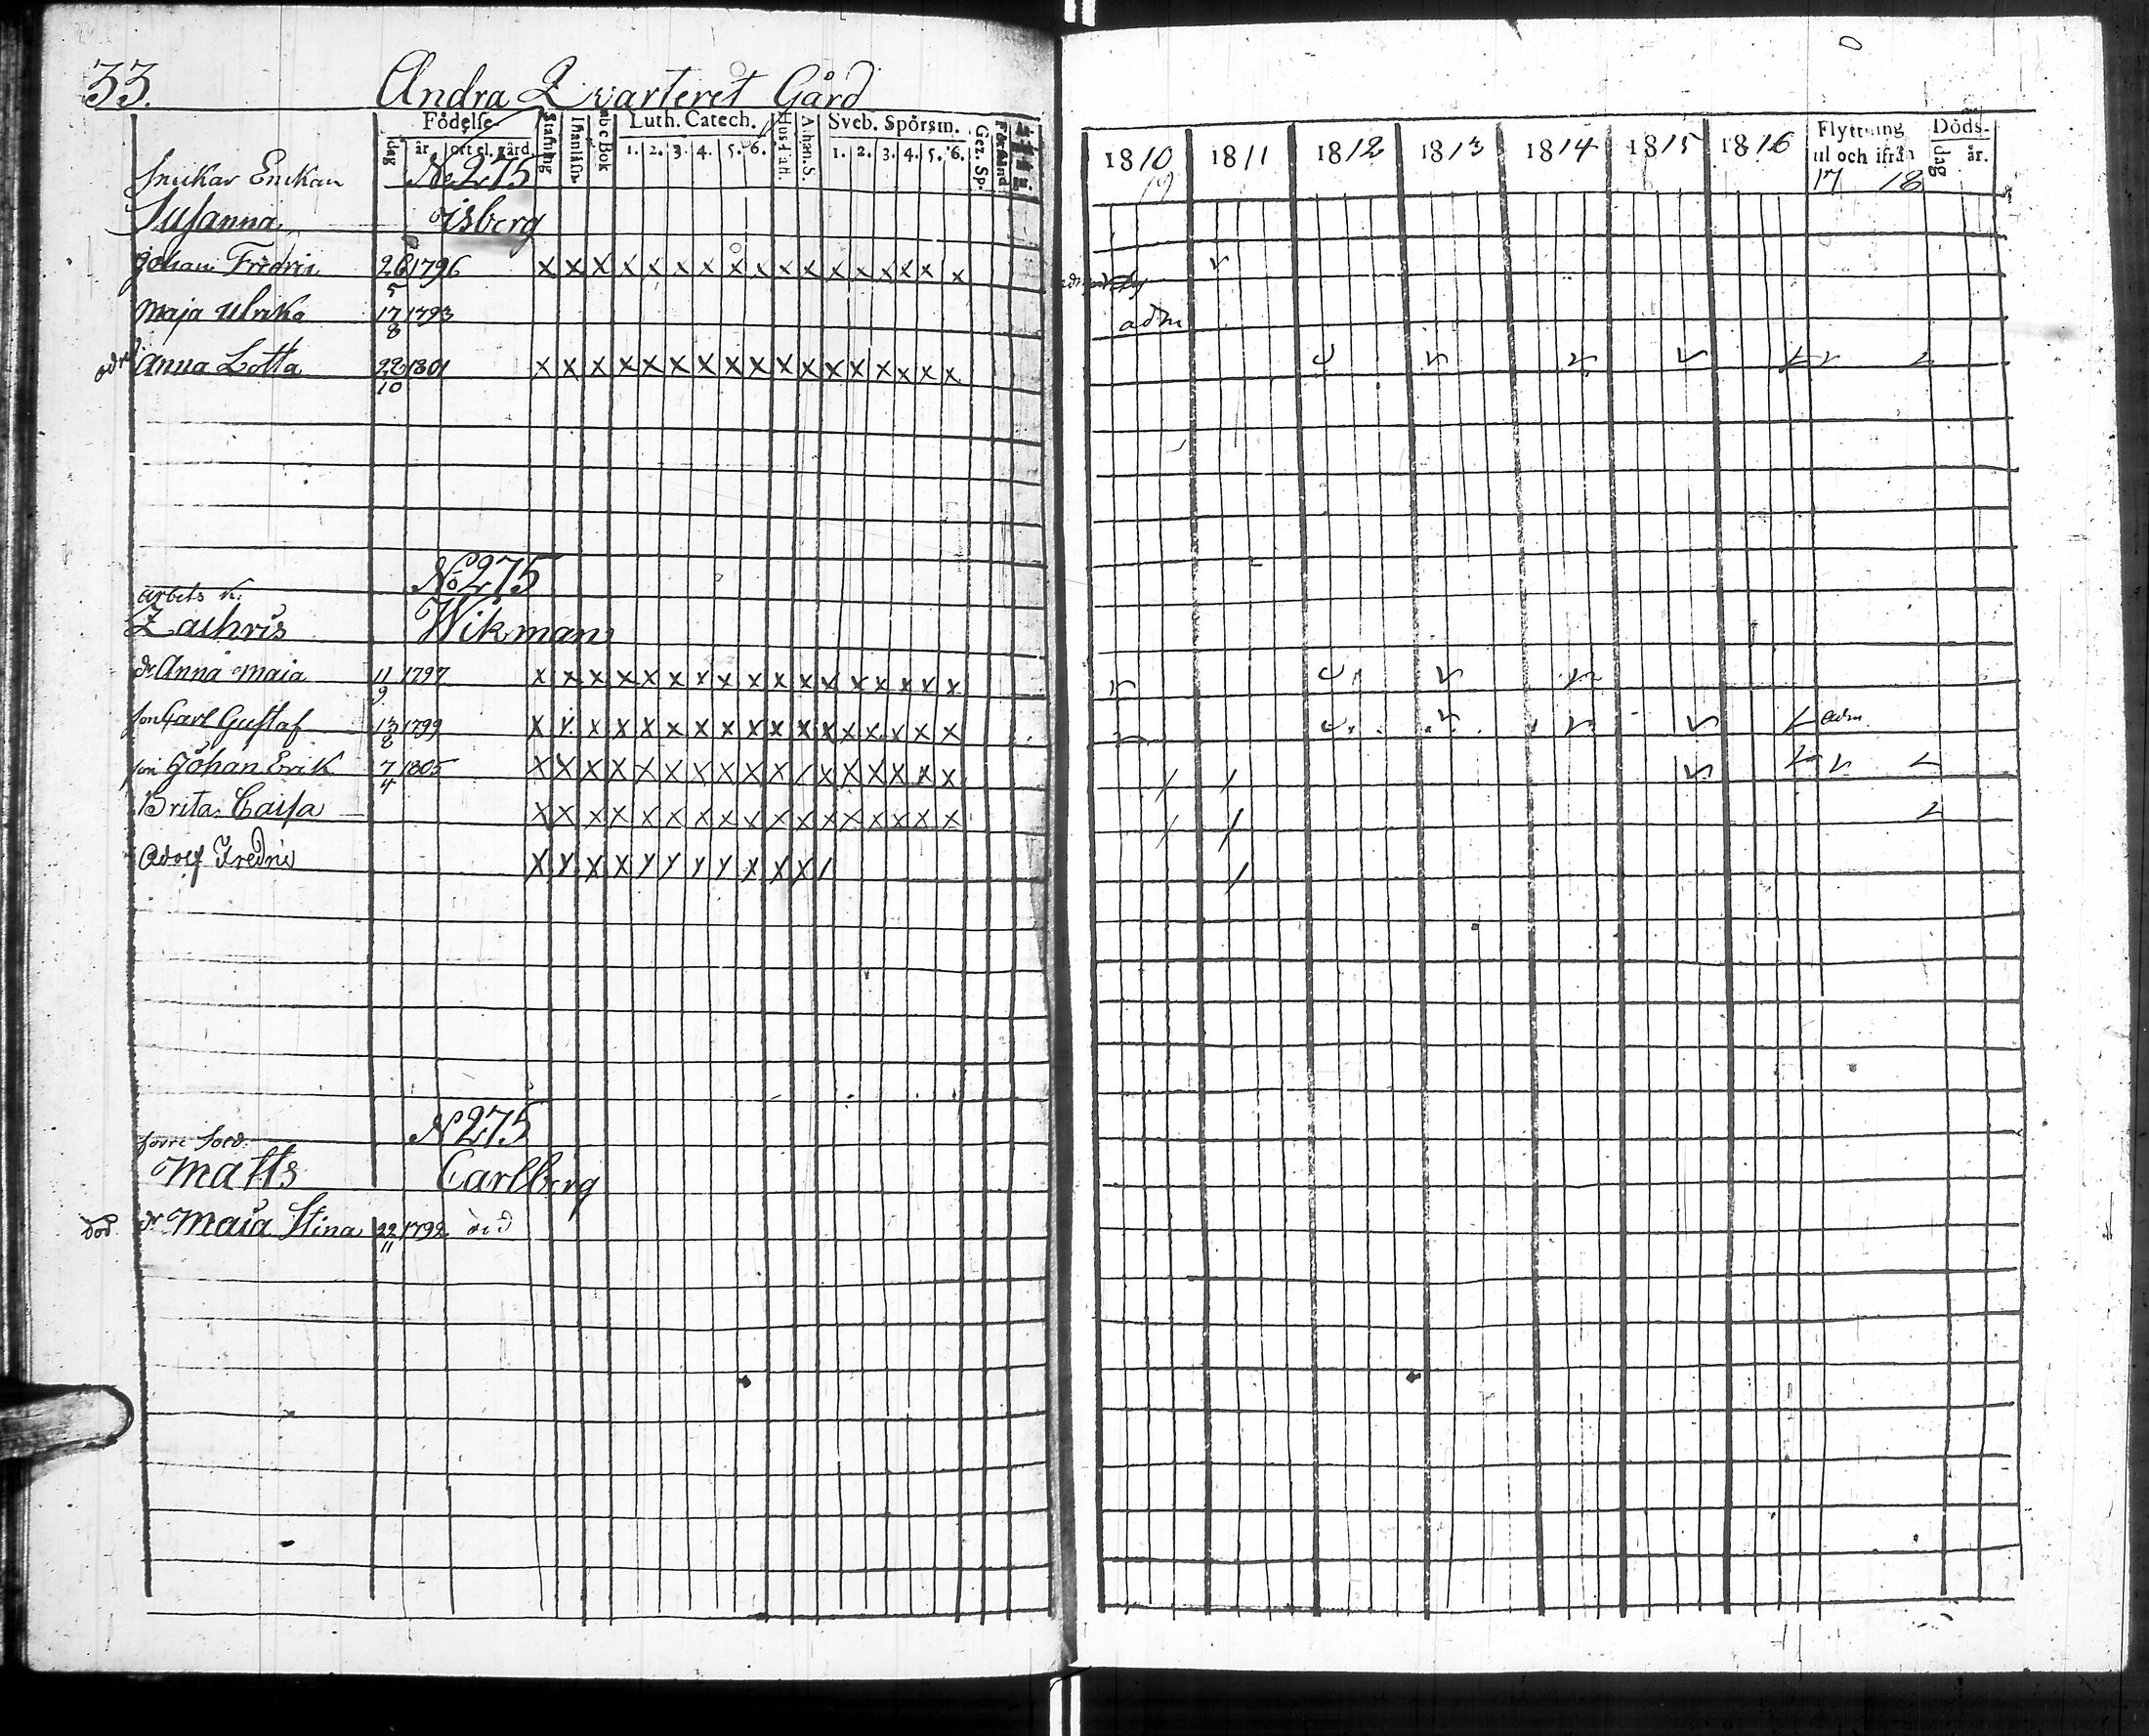 33. Andra Qvarteret Gård
Födelse Luth. Catech. Hus-Tafl. Athan. S. Sveb. Spörsm. Gez. Sp. Förstånd
dag år ort el. gård Stafning Innanläsn. abc Bok 1. 2. 3. 4. 5. 6. 1. 2. 3. 4. 5. 6.
Snickar Enckan No 275
Susanna Isberg
Johan Fredric 26/5 1796 x x x x x x x x x x x x x x x x x
Maja Ulrika 17/8 1793
Anna Lotta 22/10 1801 x x x x x x x x x x x x x x x x x
No 275
arbets k.
Zachris Wikman
dr Anna Maja 11/9 1797 x x x x x x x x x x x x x x x x x
son Carl Gustaf 13/8 1799 x x x x x x x x x x x x x x x x x
son Johan Erik 7/4 1805 x x x x x x x x x x / x x x x x x
Brita Caisa x x x x x x x x x x x x x x x x x
Adolf Fredric x x x x x x x x x x x /
N 275
förre Sold.
Matts Carlberg
död dr Maja Stina 22/11 1792 död
1810 1811 1812 1813 1814 1815 1816 Flyttning Döds-
ut och ifrån dag år.
17 18
adm
adm